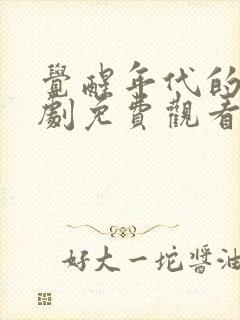 覺醒年代的
劇免費觀看
好大一坨醬油